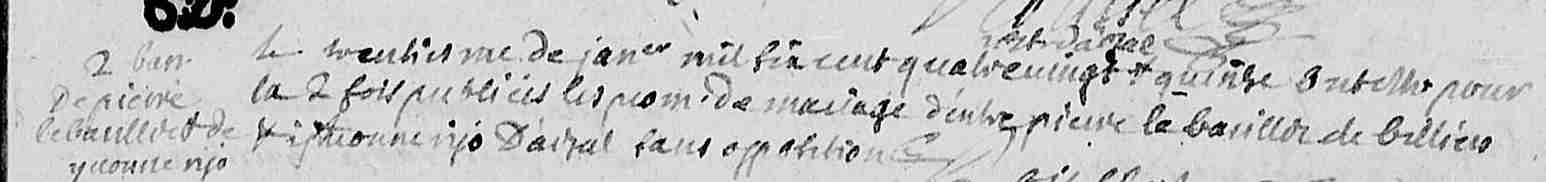 2 ban
de pierre
le baullier & de
yuonne rio
le trentiesme de janer mil six cent quatre vingt & quinse ont este pour
la 2 fois publiees les prom. de mariage dentre pierre le baullier de billiers
& yuonne rio D'arzal sans opposition